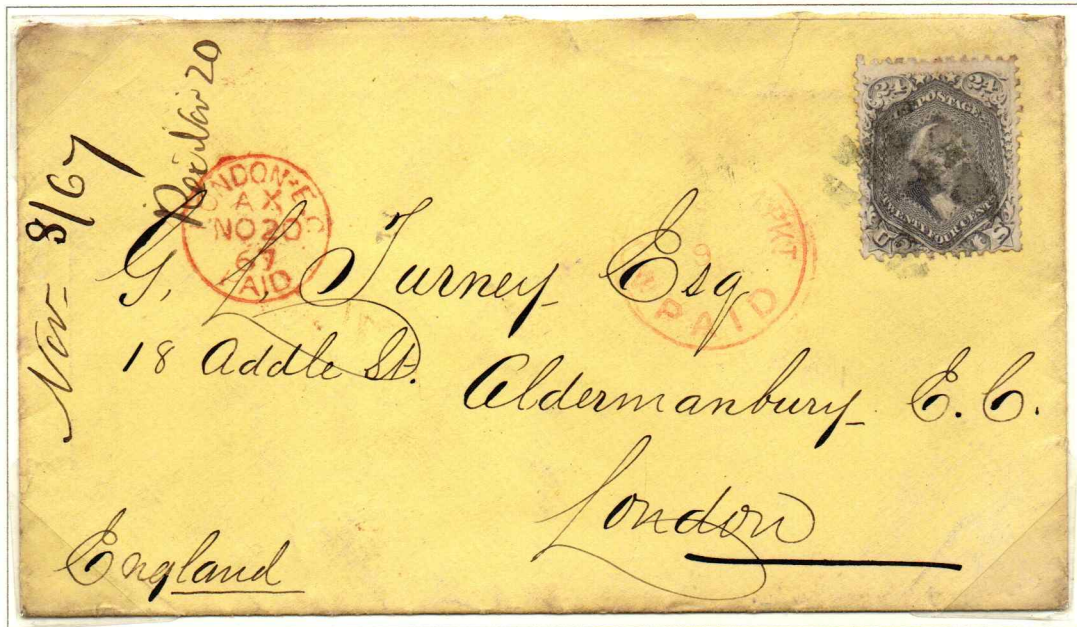 Nov- 8/67
Rec Nov 20
LONDON·E.C
AX
NO 20
67
PAID
PKT
PAID
24 24
U.S. POSTAGE
TWENTY FOUR CENTS
U S
G. L. Turney Esq
18 Addle St. Aldermanbury E. C.
London
England